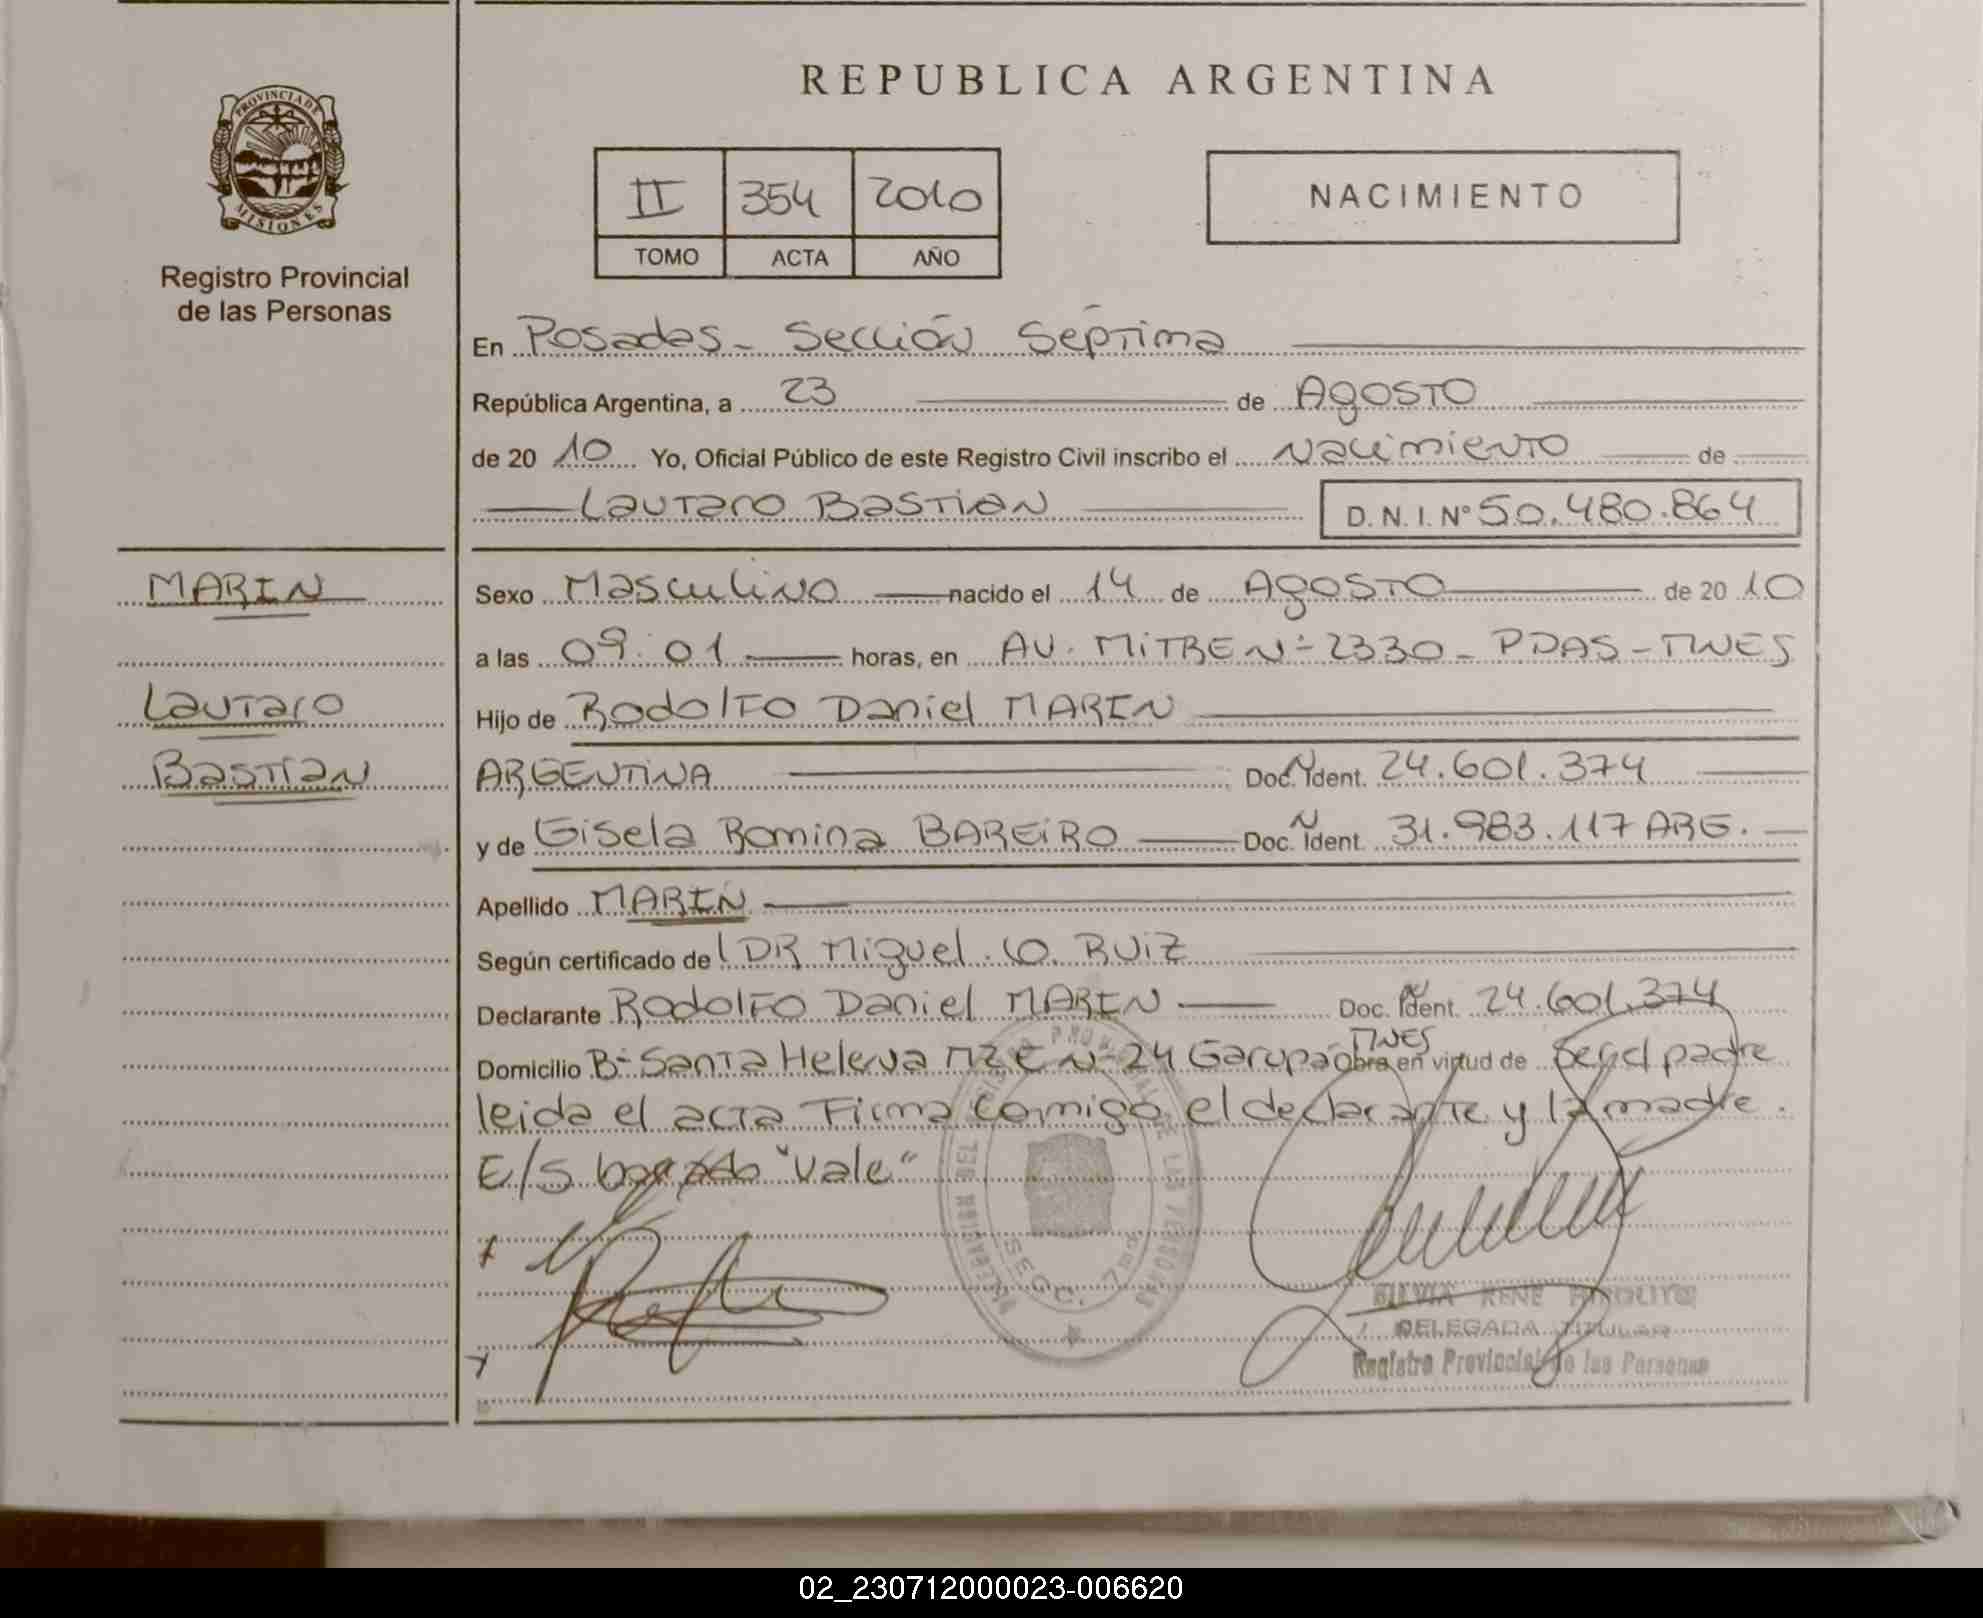 REPUBLICA ARGENTINA
PROVINCIA DE
MISIONES
Registro Provincial
de las Personas
II 354 2010
TOMO ACTA AÑO
NACIMIENTO
En Posadas - Sección Séptima
República Argentina, a 23 de Agosto
de 20 10 Yo, Oficial Público de este Registro Civil inscribo el Nacimiento de
Lautaro Bastian D. N. I. Nº 50.480.864
MARIN
Lautaro
Bastian
Sexo Masculino nacido el 14 de Agosto de 20 10
a las 09:01 horas, en AV. MITRE Nº 2330 - PDAS - MNES
Hijo de Rodolfo Daniel MARIN
ARGENTINA Doc. N Ident. 24.601.374
y de Gisela Romina BAREIRO Doc. N Ident. 31.983.117 ARG.
Apellido MARIN
Según certificado de DR Miguel. O. RUIZ
Declarante Rodolfo Daniel MARIN Doc. N Ident. 24.601.374
Domicilio Bº Santa Helena MZ E Nº 24 Garupá MNES Obra en virtud de Ser el padre
leida el acta Firma conmigo el declarante y la madre.
E/S borrado "Vale"
SECC. 7ma
SILVIA RENE
DELEGADA TITULAR
Registro Provincial de las Personas
02_230712000023-006620